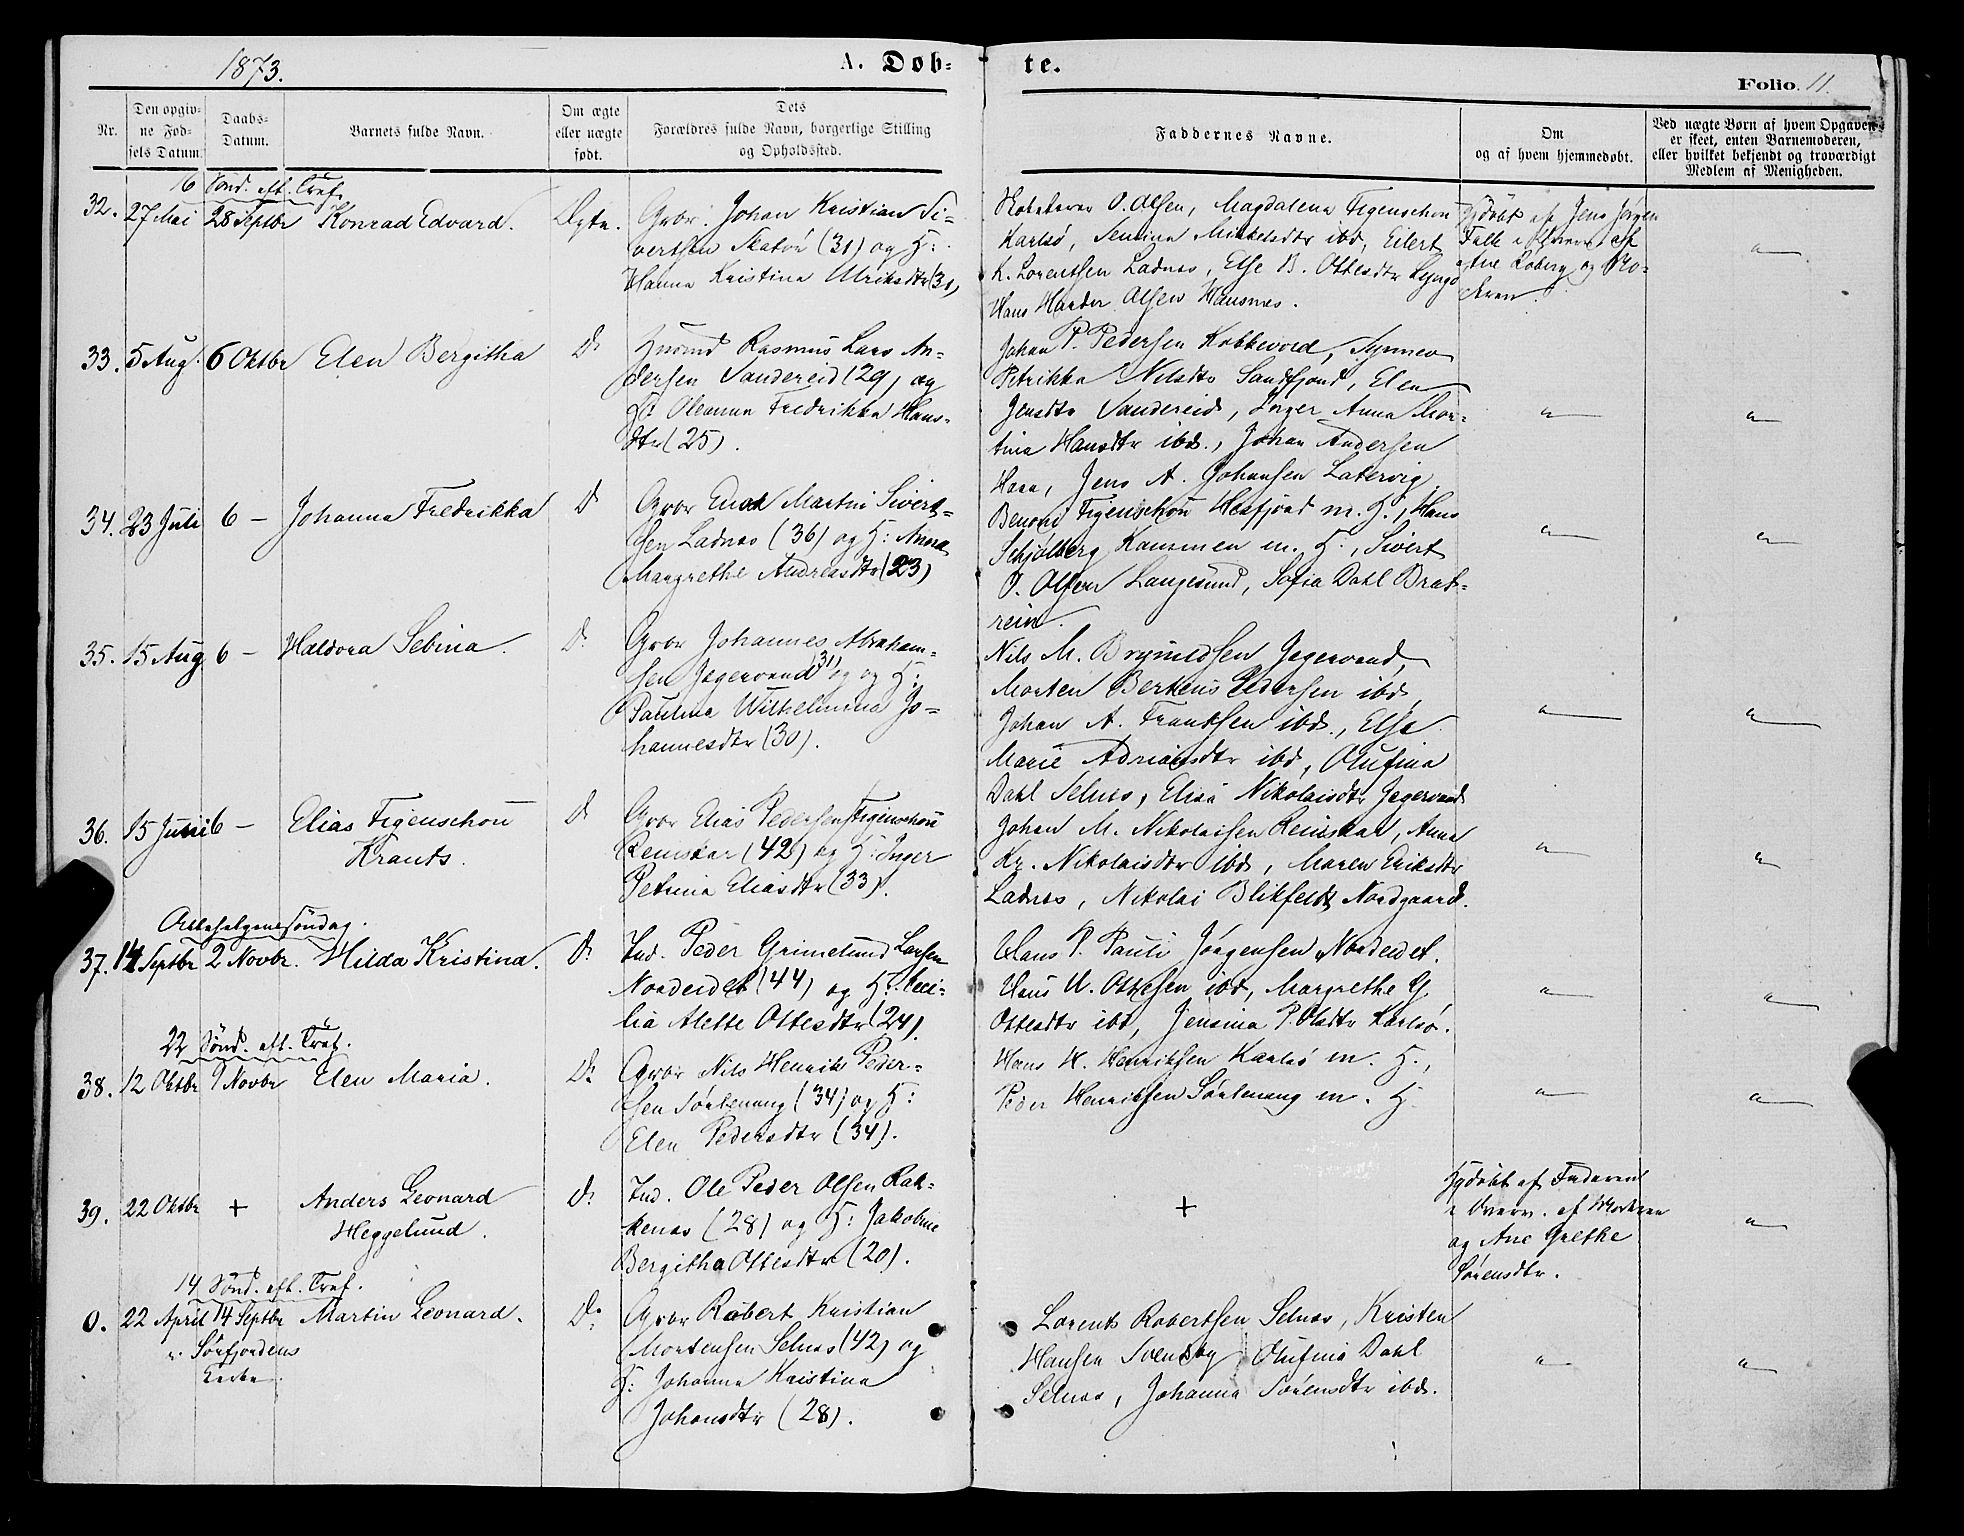 1873.
A. Døb-
te.
Folio. 11.
Nr.
Den opgiv-
ne Fød-
sels Datum.
Daabs-
Datum.
Barnets fulde Navn.
Om ægte
eller uægte
født.
Dets
Forældres fulde Navn, borgerlige Stilling
og Opholdssted.
Faddernes Navne.
Om
og af hvem hjemmedøbt.
Ved uægte Børn af hvem Opgaven
er skeet, enten Barnemoderen,
eller hvilket bekjendt og troværdigt
Medlem af Menigheden.
16 Sønd. eft. Tref.
32. 27 Mai 28 Septbr Konrad Edvard. Ægte.
Gbr. Johan Kristian Si-
vertsen Skatør (31) og H:
Hanna Kristina Ulriksdtr (31)
O. Olsen, Magdalena Figenschou
Karlsø, Senina Mikkelsdtr ibd, Eilert
K. Lorentsen Ladnes, Else B. Ottesdtr
Hans Harder Olsen Hansnes.
Hjdøbt af Jens Jørgen
Falk i af
Ane Koberg og
33. 5 Aug. 6 Oktbr Elen Bergitha D.
Husmd Rasmus Lars An-
dersen Vandereid (29) og
H: Oleanna Fredrikka Hans-
dtr (25).
Johan P. Pedersen Kobbevoid, Synnev
Petrikka Nilsdtr Sandfjord, Elen
Jensdtr Vandereid, Inger Anna Mor-
tina Hansdtr ibd., Johan Andersen
34. 23 Juli 6 — Johanna Fredrikka D
Gbr Enok Martin Sivert-
sen Ladnes (36) og H: Anna
Margrethe Andreasdtr (23)
Jens A. Johansen Latervig
Benoni Figenschou Hesfjord m. H., Hans
Schjølberg Kansmen m. H., Sivert
P. Olsen Langesund, Sofia Dahl Brat-
rein.
35. 15 Aug 6 — Haldora Sebina. D.
Gbr Johannes Abraham-
sen Jegervand (31) og H:
Paulina Wilhelmina Jo-
hannesdtr (30).
Nils M. Brynildsen Jegervand,
Morten Berteus Pedersen ibd,
Johan A. Frantsen ibd., Else
Marie Adriansdtr ibd, Olufina
Dahl Selnes, Elisa Nikolaisdtr Jegervand
36. 15 Juni 6 — Elias Figenschou D
Krants.
Gbr Elias Pedersen Figenschou
Reinskar (42) og H: Inger
Petrina Eliasdtr (33).
Johan M. Nikolaisen Reinskar, Anna
Kr. Nikolaisdtr ibd, Maren Eriksdtr
Ladnes, Nikolai Blikfeldt Nordgaard.
Allehelgenssøndag.
37. 14 Septbr 2 Novbr. Hilda Kristina. D.
Ind. Peder Grimelund Larsen
Nordeidet (44) og H: Ceci-
lia Alette Ottesdtr (24).
Claus P. Pauli Jørgensen Nordeidet.
Hans U. Ottesen ibd, Margrethe G
Ottesdtr ibd, Jensina P. Olsdtr Karlsø.
22 Sønd. eft. Tref.
38. 12 Oktbr 9 Novbr Elen Maria. D.
Gbr Nils Henrik Peder-
sen Sørlenang (34) og H:
Elen Pedersdtr (34).
Hans H. Henriksen Karlsø m. H.,
Peder Henriksen Sørlenang m. H
39. 22 Oktbr + Anders Leonard D.
Heggelund.
Ind. Ole Peder Olsen Rak-
kenes (28) og H: Jakobine
Bergitha Ottesdtr (20).
+
Hjdøbt af Faderen
i Overv. af Moderen
og Ane Grethe
Sørensdtr.
14 Sønd. eft. Tref.
0. 22 April 14 Septbr Martin Leonard. D.
i Sørfjordens
Kirke.
Gbr Robert Kristian
Mortensen Selnes (42) og
H: Johanna Kristina
Johansdtr (28).
Lorents Robertsen Selnes, Kristen
Hansen Svensby, Olufina Dahl
Selnes, Johanna Sørensdtr ibd.